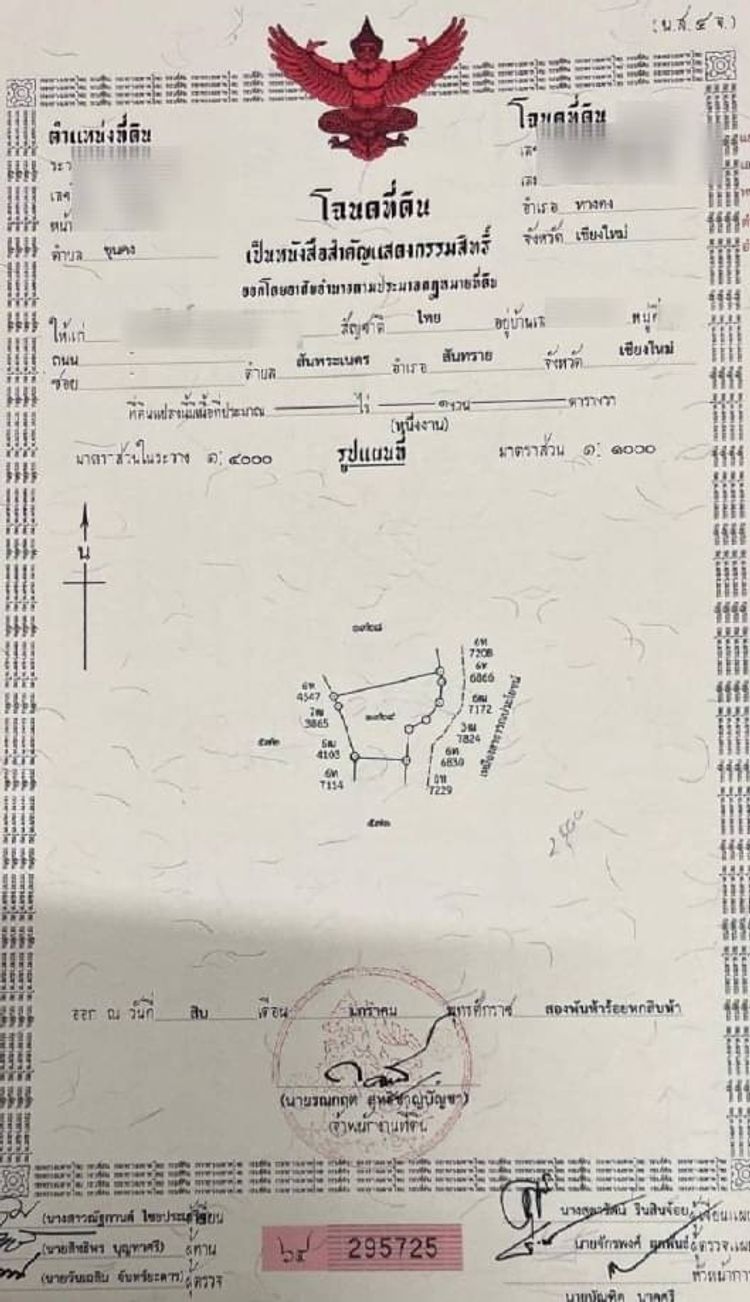 (น.ส.๔ จ.)
ตำแหน่งที่ดิน
โฉนดที่ดิน
ระวา
เลขที่
หน้า
ตำบล ขุนคง
เลข
เลข
อำเภอ หางดง
จังหวัด เชียงใหม่
โฉนดที่ดิน
เป็นหนังสือสำคัญแสดงกรรมสิทธิ์
ออกโดยอาศัยอำนาจตามประมวลกฎหมายที่ดิน
ให้แก่ สัญชาติ ไทย อยู่บ้านเล หมู่ที่
ถนน - ตำบล สันพระเนตร อำเภอ สันทราย จังหวัด เชียงใหม่
ซอย -
ที่ดินแปลงนี้มีเนื้อที่ประมาณ ไร่ ๑ งาน ตารางวา
(หนึ่งงาน)
มาตราส่วนในระวาง ๑: ๔๐๐๐ รูปแผนที่ มาตราส่วน ๑: ๑๐๐๐
น
6ท
7208
6ท
6866
7172
7824
6ท
6830
7229
6ท
4547
3865
4103
6ท
7154
เหมืองสาธารณประโยชน์
ออก ณ วันที่ สิบ เดือน มกราคม พุทธศักราช สองพันห้าร้อยหกสิบห้า
เจ้าพนักงานที่ดิน
ผู้เขียน
ผู้ทาน
ผู้ตรวจ
๖๔ 295725
ผู้เขียนแผน
ผู้ตรวจแผน
หัวหน้าการ